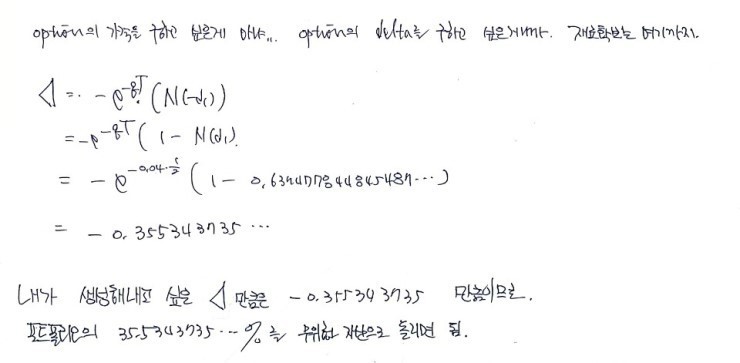 option의 가격을 구하고 싶은게 아냐... option의 delta를 구하고 싶은거니까. 재료확보는 여기까지.
Δ = -e^{-qT}(N(-d₁))
= -e^{-qT}(1 - N(d₁)
= -e^{-0.04·\frac{1}{2}}(1 - 0.637477844845487...)
= -0.355343735...
내가 생성해내고 싶은 Δ 만큼은 -0.355343735 만큼이므로.
포트폴리오의 35.5343735...%를 무위험 자산으로 돌리면 됨.